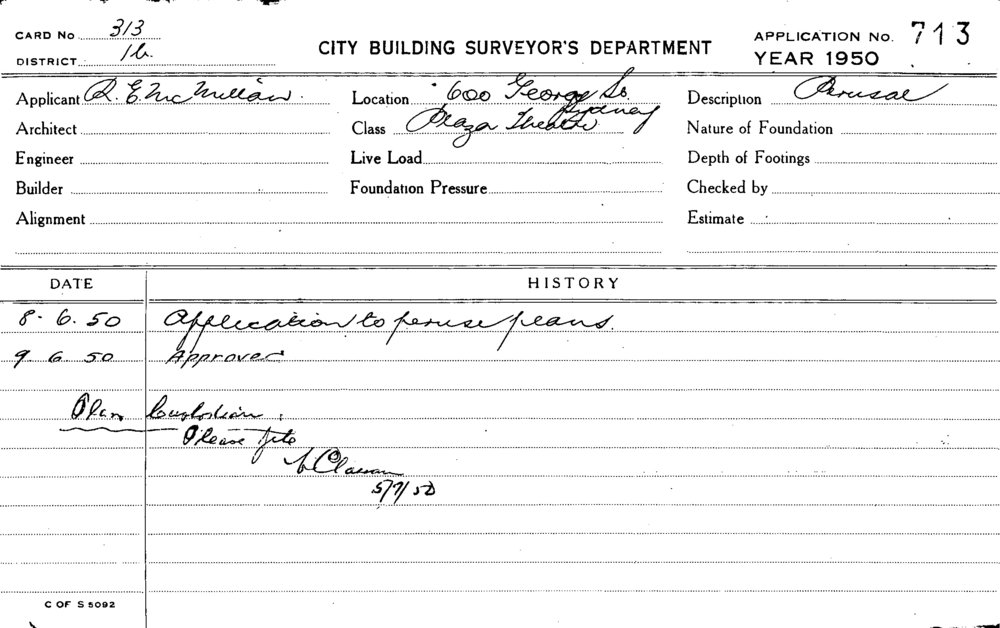 CARD No 313
DISTRICT 1b.
CITY BUILDING SURVEYOR'S DEPARTMENT
APPLICATION No. 713
YEAR 1950
Applicant R. E. McMillan.
Location 600 George St. Sydney
Description Perusal
Architect
Class Plaza Theatre
Nature of Foundation
Engineer
Live Load
Depth of Footings
Builder
Foundation Pressure
Checked by
Alignment
Estimate
DATE HISTORY
8. 6. 50 Application to peruse plans.
9. 6. 50 Approved
Plan Custodian.
Please file
5/7/50
C OF S 5092